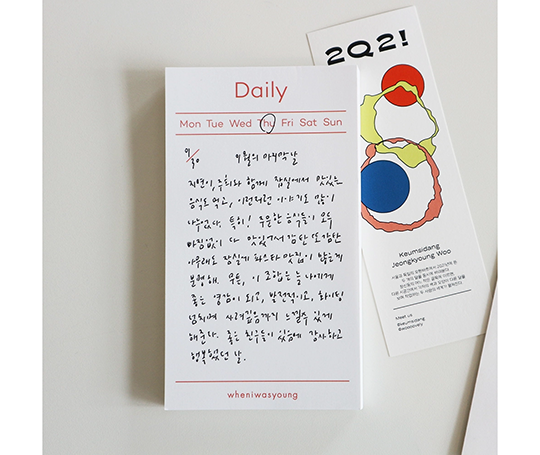 Daily
Mon Tue Wed Thu Fri Sat Sun
9/30
9월의 마지막 날
지연이, 주희와 함께 잠실에서 맛있는
음식도 먹고, 이런저런 이야기도 많이
나누었다. 특히! 주문한 음식들이 모두
빠짐없이 다 맛있어서 감탄 또 감탄
아무래도 잠실에 파스타 맛집이 많은게
분명해. 무튼, 이 조합은 늘 나에게
좋은 영감이 되고, 발전적이고, 화이팅
넘치게 사려깊음까지 느낄수 있게
해준다. 좋은 친구들이 있음에 감사하고
행복했던 날.
wheniwasyoung
2Q2!
Keumsidang
Jeongkyoung Woo
Meet us
@keumsidang
@woolovely